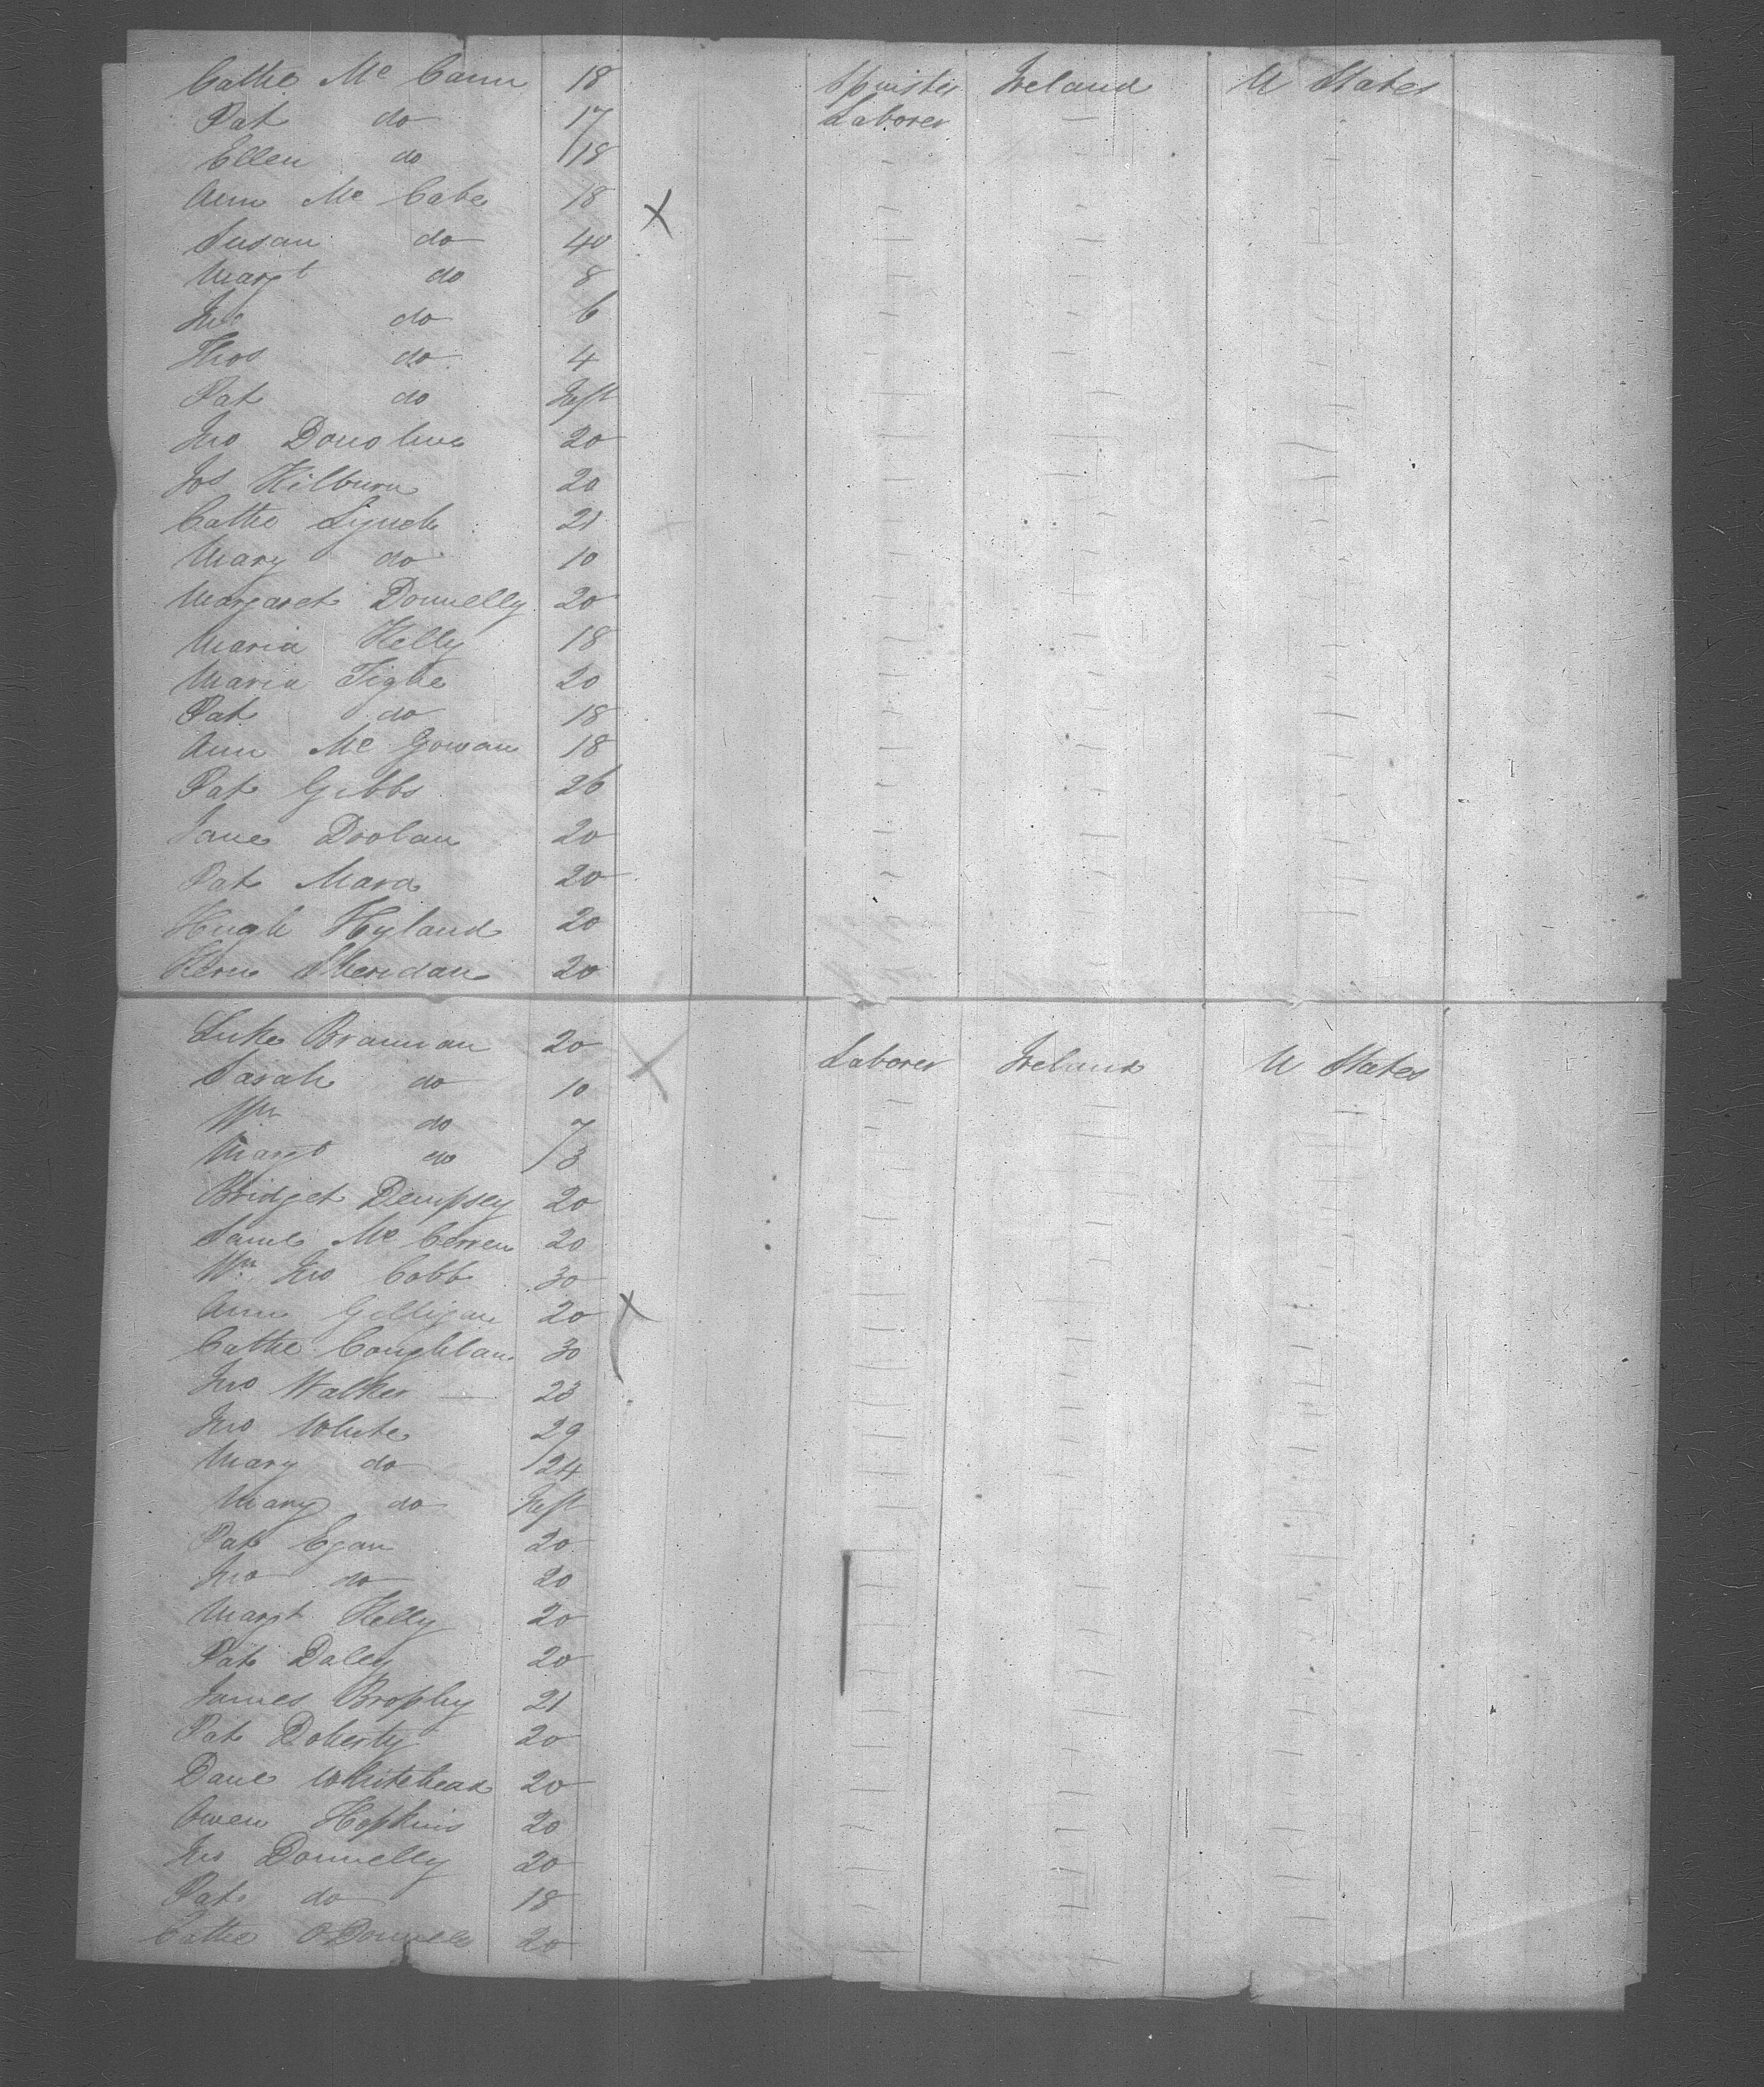 Cathe Mc Cann 18 Spinster Ireland U States
Pat do 17 Laborer
Ellen do 18
Ann Mc Cabe 18
Susan do 40
Margt do 8
Jno do 6
Thos do 4
Pat do Inft
Jno Donohue 20
Jos Kilburn 20
Cathe Lynch 21
Mary do 10
Margaret Donnelly 20
Maria Kelly 18
Maria Tighe 20
Pat do 18
Ann Mc Gowan 18
Pat Gibbs 26
Jane Doolan 20
Pat Mara 20
Hugh Hyland 20
Sheridan 20
Luke Brannan 20 Laborer Ireland U States
Sarah do 10
Wm do 7
Margt do 3
Bridget Dempsey 20
Mc 20
Wm Jno Cobb 30
Ann Gilligan 20
Cathe Coughlan 30
Jno Walker 23
Jno White 29
Mary do 24
Mary do Inft
Pat Egan 20
Jno do 20
Margt Kelly 20
Pat Daley 20
James Brophy 21
Pat Doherty 20
Danl Whitehead 20
Owen Hopkins 20
Jno Donnelly 20
Pat do 18
Cathe O Donnell 20